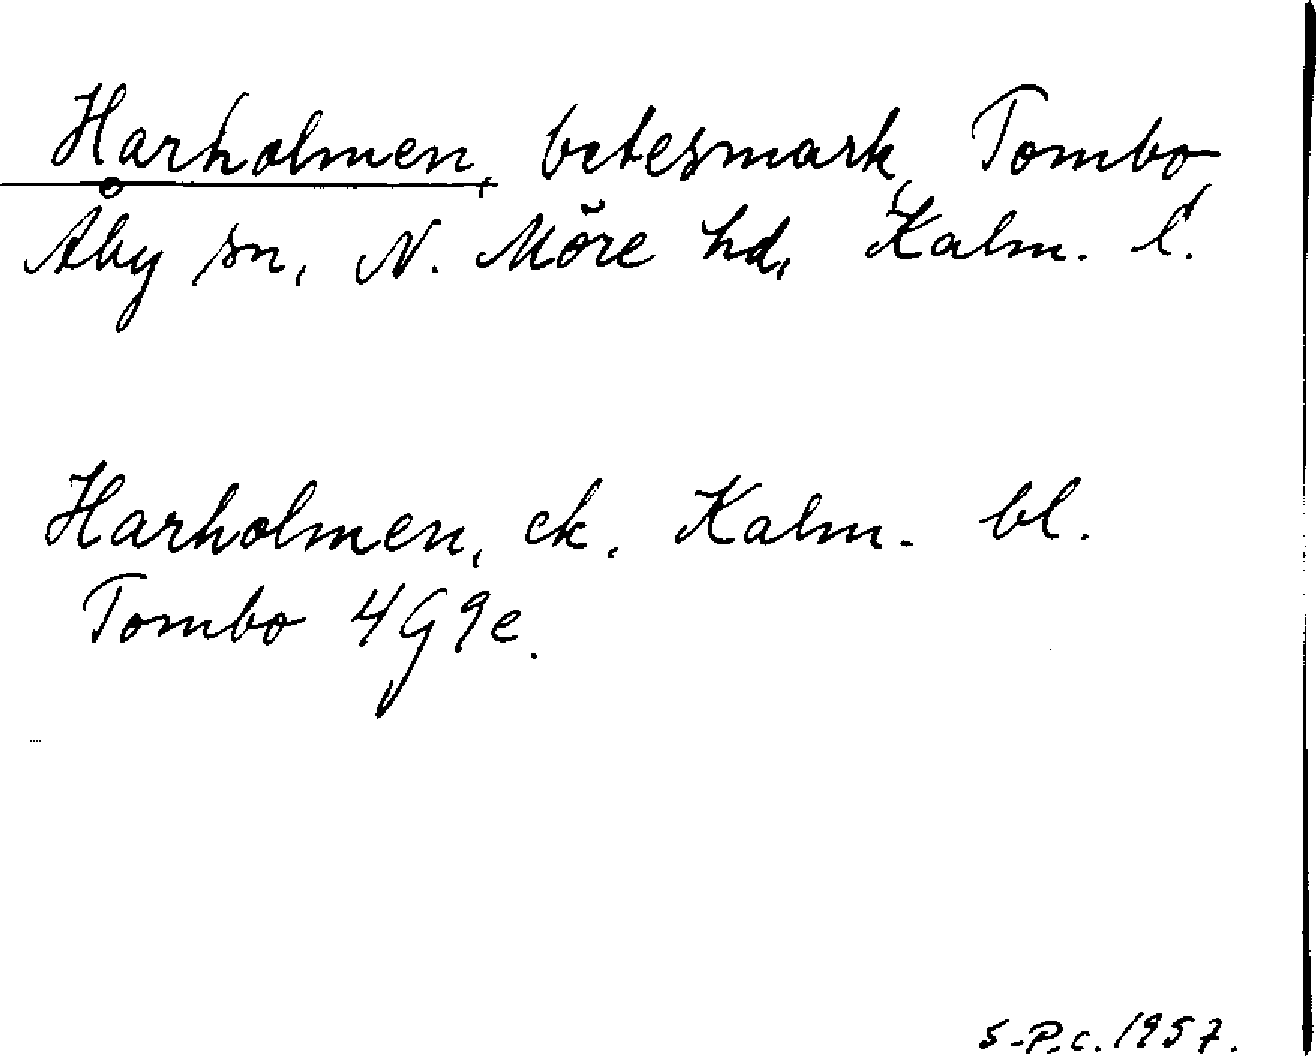 Harholmen, betesmark, Tombo,
Åby sn, N. Möre hd, Kalm. l.
Harholmen, ek. Kalm. bl.
Tombo 4G9e.
S-P.c. 1957.